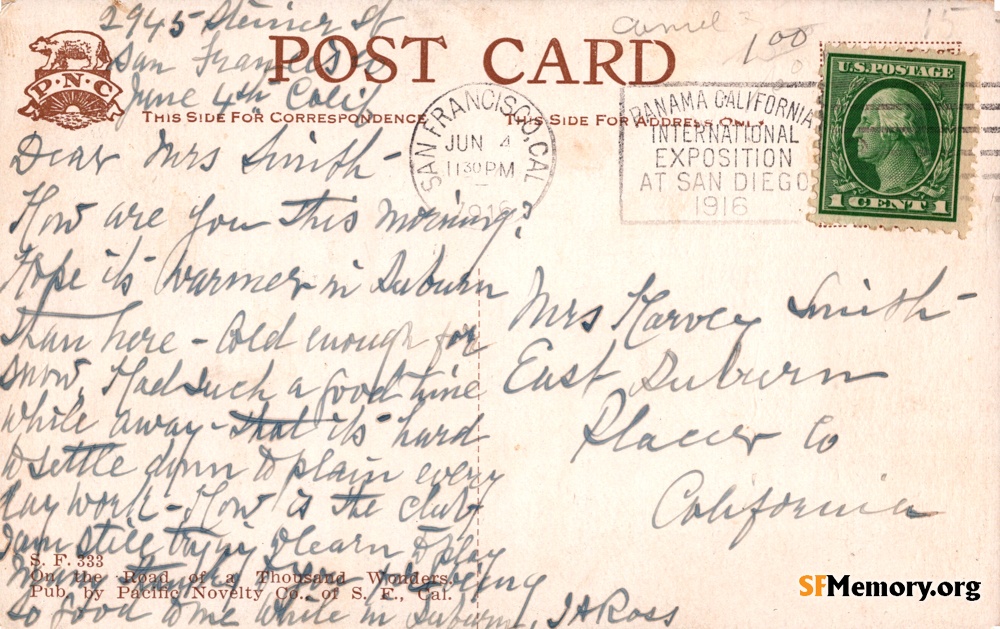 2945 Steiner St
San Francisco
June 4th Calif
POST CARD
P·N·C
THIS SIDE FOR CORRESPONDENCE
THIS SIDE FOR ADDRESS ONLY
Camel
1.00
15
SAN FRANCISCO, CAL
JUN 4
11 30 PM
1916
PANAMA CALIFORNIA
INTERNATIONAL
EXPOSITION
AT SAN DIEGO
1916
U.S. POSTAGE
1 CENT 1
Dear Mrs Smith -
How are you this morning?
Hope its warmer in Auburn
than here - Cold enough for
snow. Had such a good time
while away - that its hard
to settle down to plain every
day work - How is the club
I am still trying to learn to play
Many thanks to you for being
so good to me while in Auburn. J A Ross
Mrs Harvey Smith -
East Auburn
Placer Co
California
S. F. 333
On the Road of a Thousand Wonders.
Pub. by Pacific Novelty Co., of S. F., Cal.
SFMemory.org